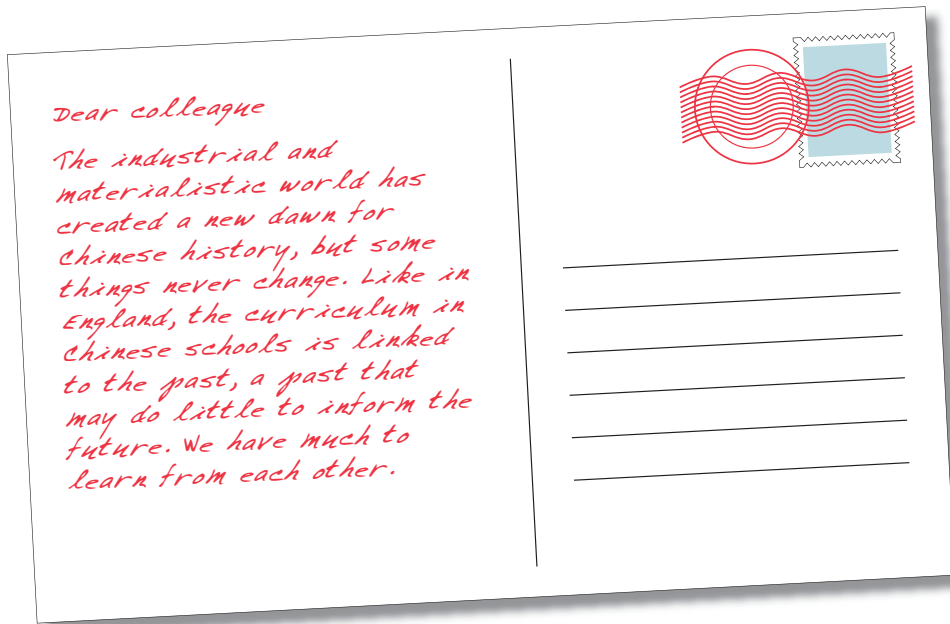 Dear colleague
The industrial and
materialistic world has
created a new dawn for
Chinese history, but some
things never change. Like in
England, the curriculum in
Chinese schools is linked
to the past, a past that
may do little to inform the
future. We have much to
learn from each other.